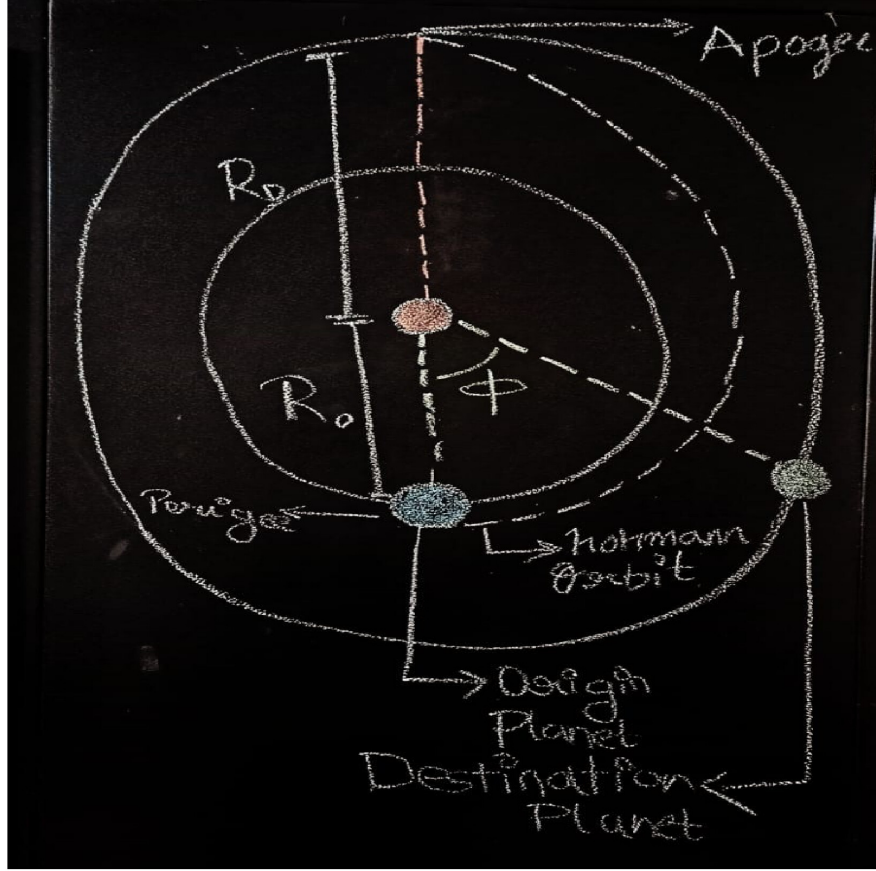 Apogee
R_D
R_o
ϕ
Perigee
hohmann
Orbit
Origin
Planet
Destination
Planet